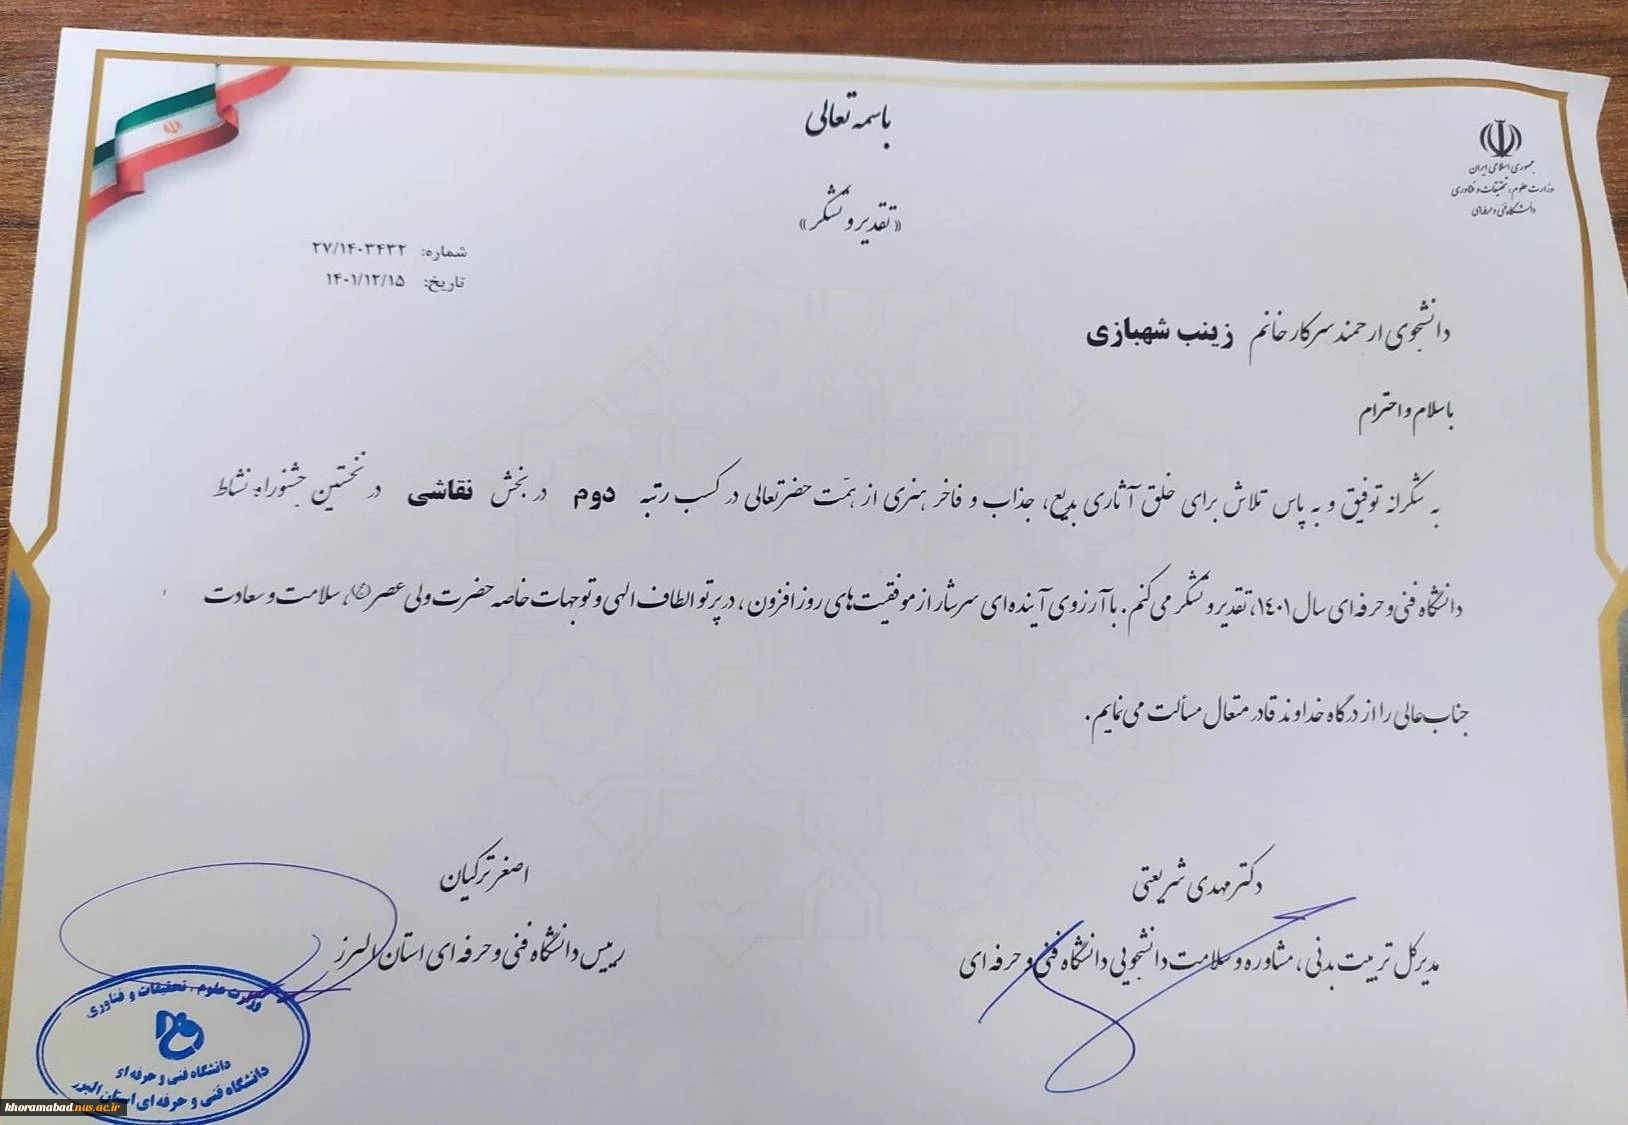 باسمه تعالی
جمهوری اسلامی ایران
وزارت علوم، تحقیقات و فناوری
دانشگاه فنی و حرفه‌ای
«تقدیر و تشکر»
شماره: ۲۷/۱۴۰۳۴۳۲
تاریخ: ۱۴۰۱/۱۲/۱۵
دانشجوی ارجمند سرکار خانم زینب شهبازی
باسلام و احترام
به شکرانه توفیق و به پاس تلاش برای خلق آثاری بدیع، جذاب و فاخر هنری از همّت حضرتعالی در کسب رتبه دوم در بخش نقاشی در نخستین جشنواره نشاط
دانشگاه فنی و حرفه‌ای سال ۱۴۰۱، تقدیر و تشکر می‌کنم. با آرزوی آینده‌ای سرشار از موفقیت‌های روزافزون، در پرتو الطاف الهی و توجهات خاصه حضرت ولی عصر(عج)، سلامت و سعادت
جناب‌عالی را از درگاه خداوند قادر متعال مسألت می‌نمایم.
دکتر مهدی شریعتی
مدیرکل تربیت بدنی، مشاوره و سلامت دانشجویی دانشگاه فنی و حرفه ای
اصغر ترکیان
رییس دانشگاه فنی و حرفه ای استان البرز
وزارت علوم، تحقیقات و فناوری
دانشگاه فنی و حرفه ای
دانشگاه فنی و حرفه ای استان البرز
khoramabad.nus.ac.ir